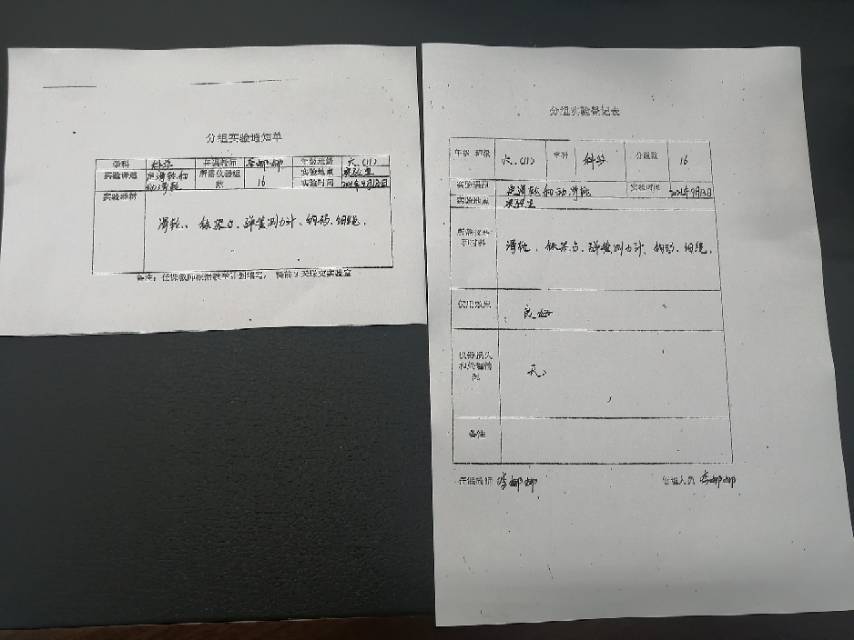 分组实验通知单
学科 科学 任课教师 李娜娜 年级班级 六、(11)
实验课题 定滑轮和动滑轮 所需仪器组数 16 实验地点 实验室
实验时间
实验器材
滑轮、铁架台、弹簧测力计、钩码、细绳.
备注:任课教师根据教学计划填写,提前3天送交实验室
分组实验登记表
年级 班级 六、(11) 学科 科学 分组数 16
实验课题 定滑轮和动滑轮 实验时间
实验地点 实验室
所需仪器和材料 滑轮、铁架台、弹簧测力计、钩码、细绳.
使用效果 良好
仪器损失和处理情况 无
备注
任课教师 李娜娜 管理人员 李娜娜